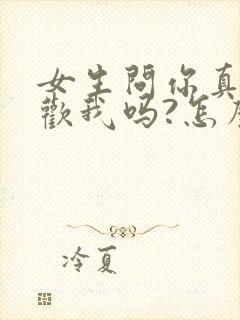 女生问你真
歡我吗?怎
冷夏